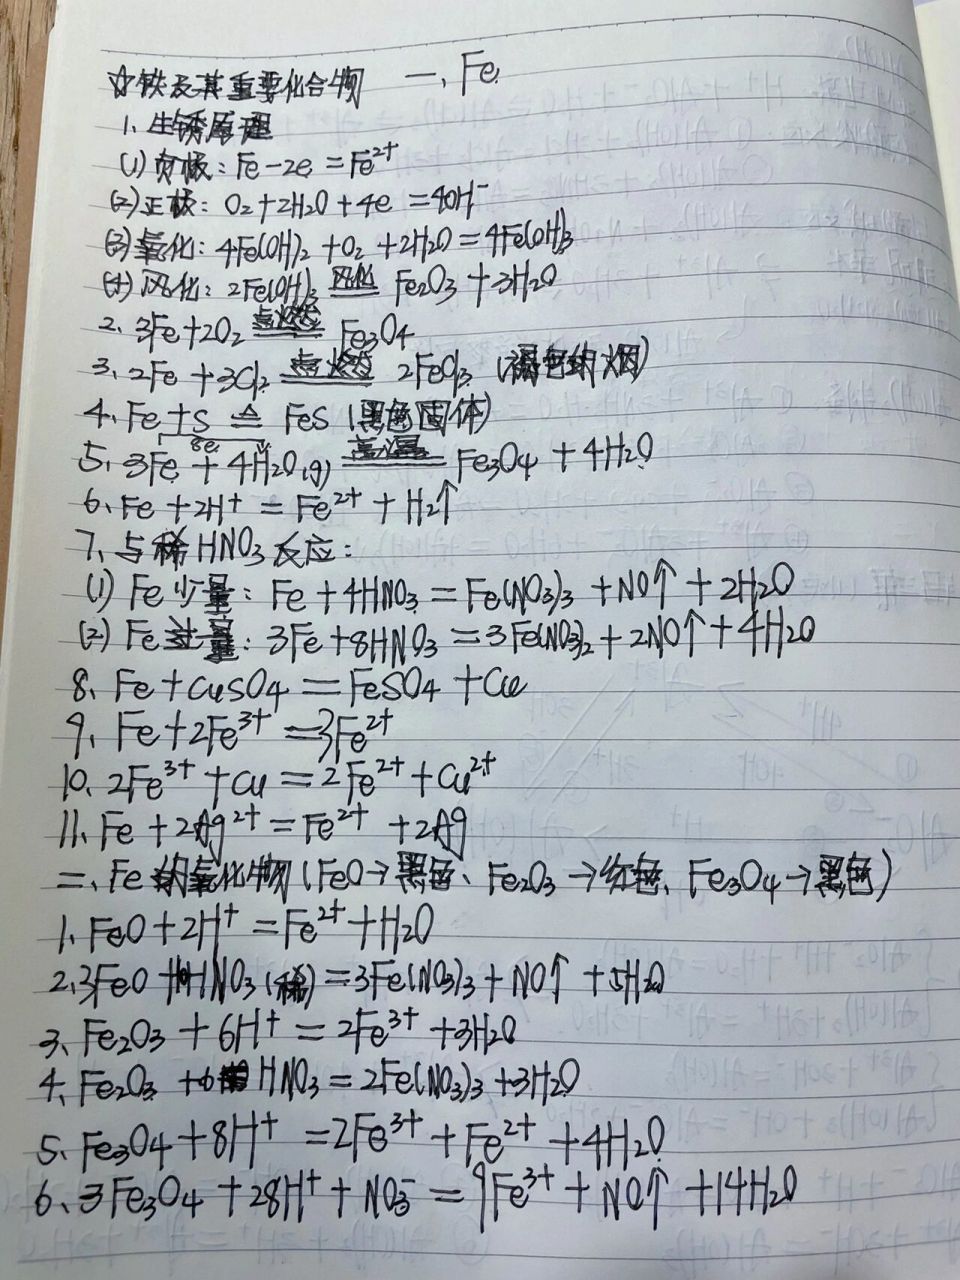 ☆铁及其重要化合物 一、Fe
1、生锈原理
(1)负极：Fe-2e=Fe²⁺
(2)正极：O₂+2H₂O+4e=4OH⁻
(3)氧化：4Fe(OH)₂+O₂+2H₂O=4Fe(OH)₃
(4)风化：2Fe(OH)₃ 风化 Fe₂O₃+3H₂O
2、3Fe+2O₂ 点燃 Fe₃O₄
3、2Fe+3Cl₂ 点燃 2FeCl₃ (褐色的烟)
4、Fe+S ≜ FeS (黑色固体)
8e
5、3Fe+4H₂O(g) 高温 Fe₃O₄+4H₂O
6、Fe+2H⁺=Fe²⁺+H₂↑
7、与稀HNO₃反应：
(1) Fe少量：Fe+4HNO₃=Fe(NO₃)₃+NO↑+2H₂O
(2) Fe过量：3Fe+8HNO₃=3Fe(NO₃)₂+2NO↑+4H₂O
8、Fe+CuSO₄=FeSO₄+Cu
9、Fe+2Fe³⁺=3Fe²⁺
10、2Fe³⁺+Cu=2Fe²⁺+Cu²⁺
11、Fe+2Ag²⁺=Fe²⁺+2Ag
二、Fe的氧化物(FeO→黑色、Fe₂O₃→红色、Fe₃O₄→黑色)
1、FeO+2H⁺=Fe²⁺+H₂O
2、3FeO+10HNO₃(稀)=3Fe(NO₃)₃+NO↑+5H₂O
3、Fe₂O₃+6H⁺=2Fe³⁺+3H₂O
4、Fe₂O₃+6HNO₃=2Fe(NO₃)₃+3H₂O
5、Fe₃O₄+8H⁺=2Fe³⁺+Fe²⁺+4H₂O
6、3Fe₃O₄+28H⁺+NO₃⁻=9Fe³⁺+NO↑+14H₂O